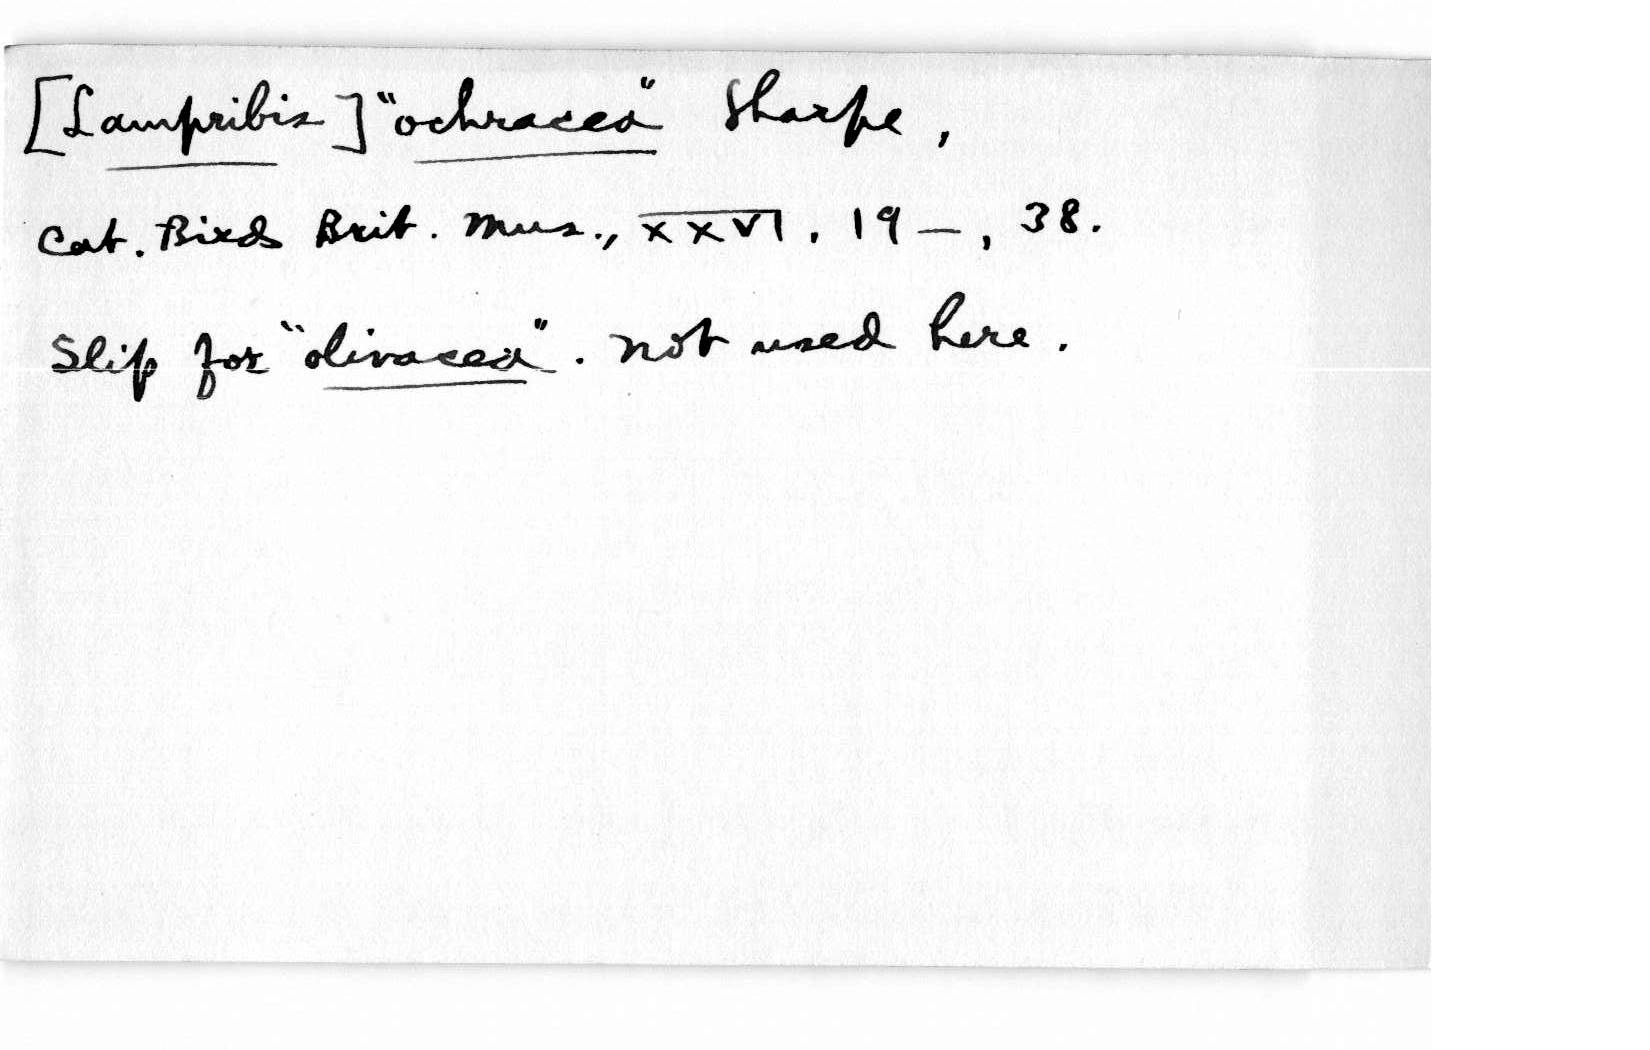 [Lampribis] "ochracea" Sharpe,
Cat. Birds Brit. Mus., XXVI, 19—, 38.
Slip for "olivacea". Not used here.